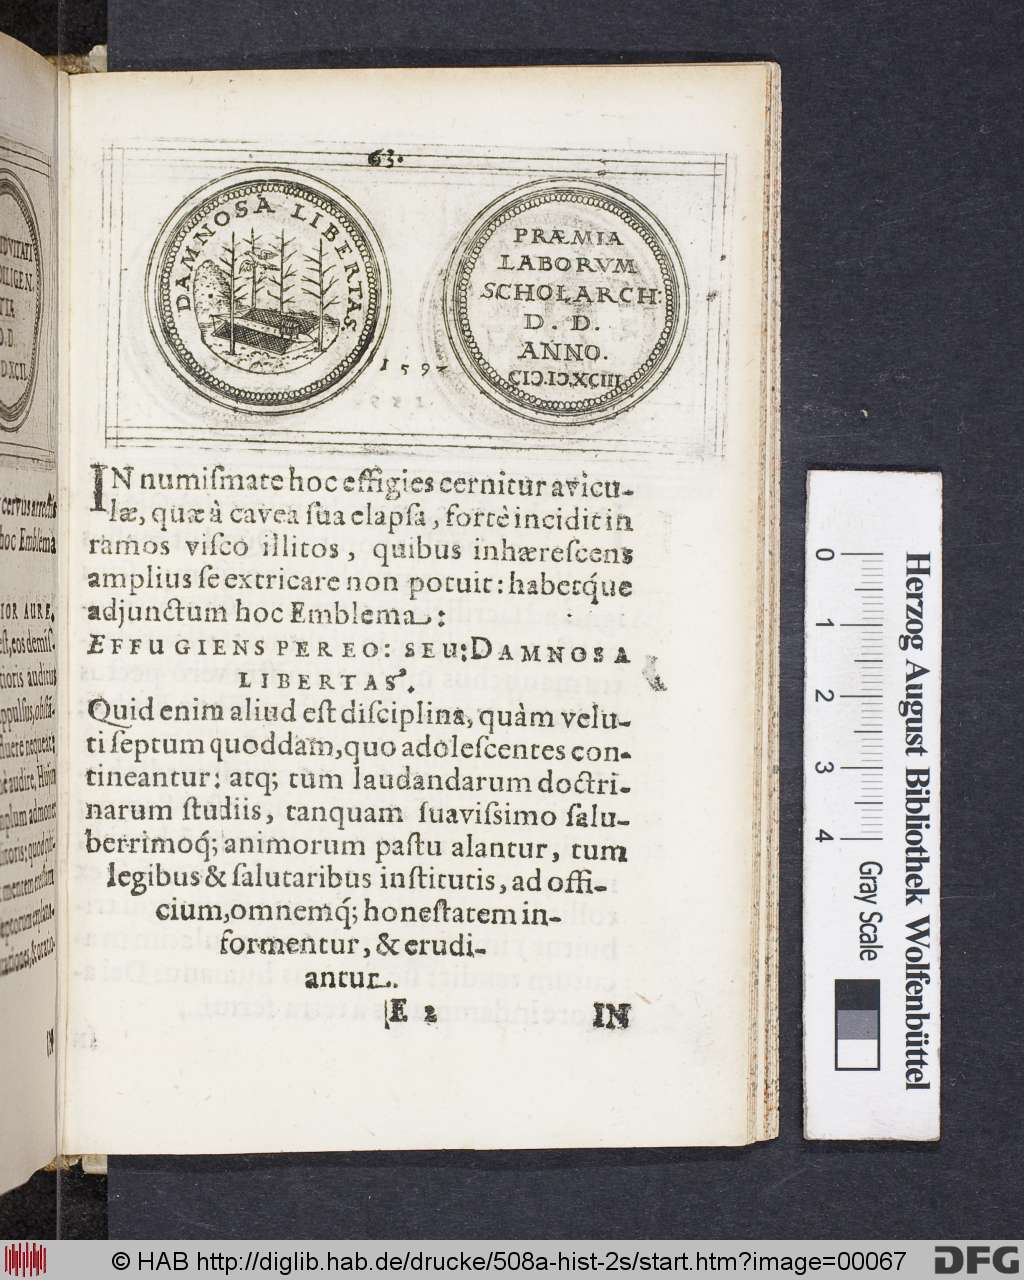 63.
DAMNOSA LIBERTAS.
PRÆMIA
LABORVM
SCHOLARCH:
D. D.
ANNO.
CIↃ.IↃ.XCIII
159
IN numiſmate hoc effigies cernitur avicu-
læ, quæ à cavea ſua elapſa, fortè incidit in
ramos viſco illitos, quibus inhæreſcens
amplius ſe extricare non potuit: habetq́ue
adjunctum hoc Emblema:
EFFUGIENS PEREO: SEU: DAMNOSA
LIBERTAS.
Quid enim aliud eſt diſciplina, quàm velu-
ti ſeptum quoddam, quo adoleſcentes con-
tineantur: atq; tum laudandarum doctri-
narum ſtudiis, tanquam ſuaviſsimo ſalu-
berrimoq́; animorum paſtu alantur, tum
legibus & ſalutaribus inſtitutis, ad offi-
cium, omnemq́; honeſtatem in-
formentur, & erudi-
antur.
E 2
IN
cervus arrectis
hoc Emblema
IOR AURE.
0 1 2 3 4
Gray Scale
Herzog August Bibliothek Wolfenbüttel
© HAB http://diglib.hab.de/drucke/508a-hist-2s/start.htm?image=00067
DFG